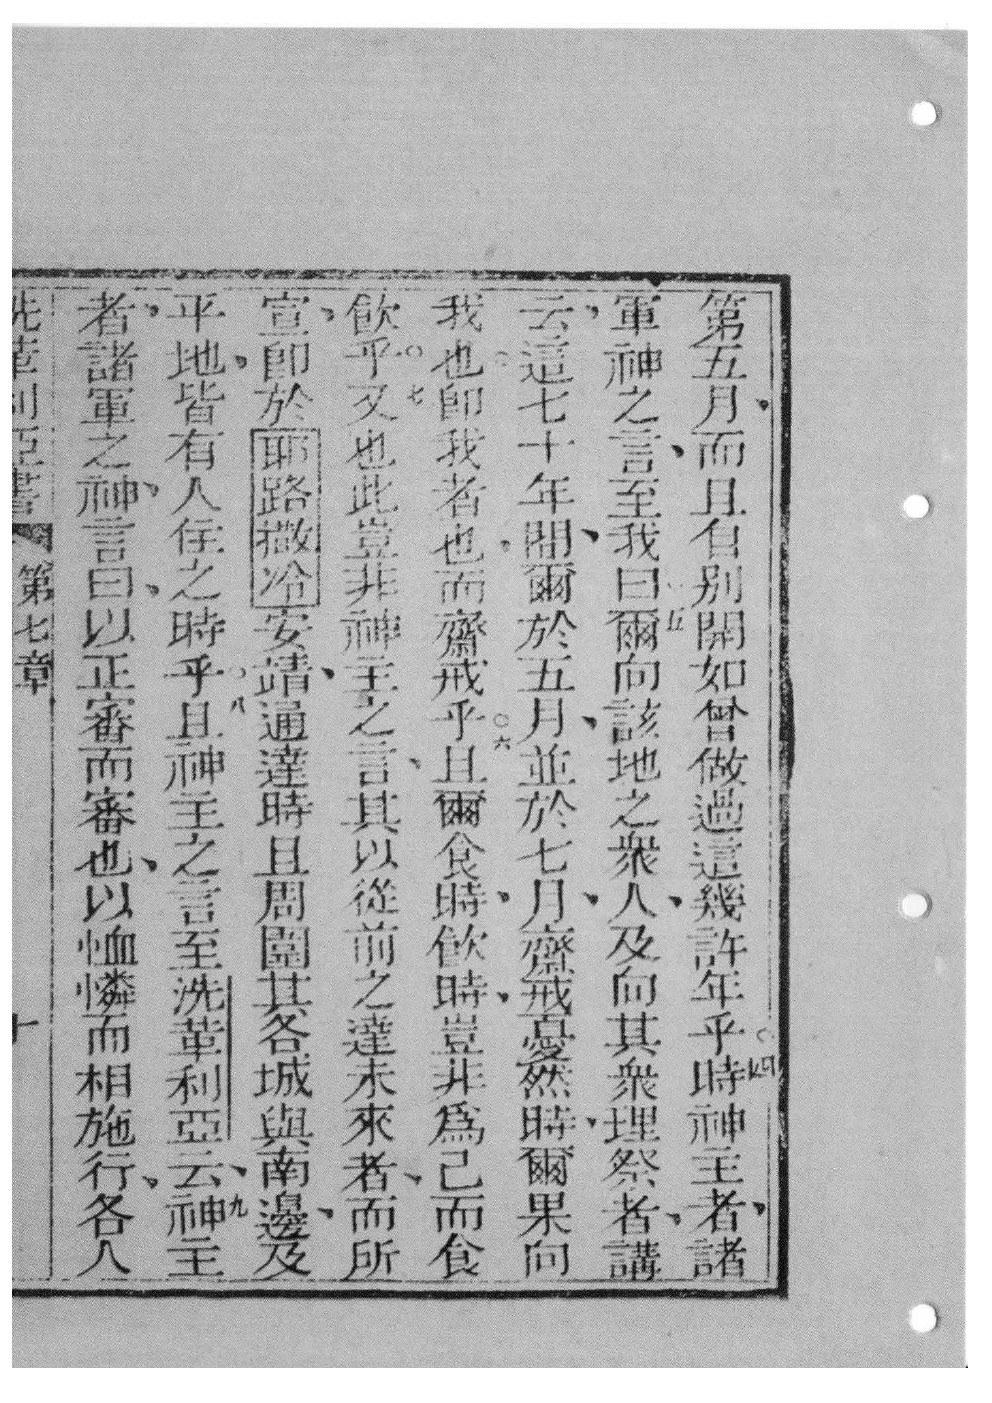 第五月、而且自別開如曾做過這幾許年乎○四時神主者、諸
軍神之言、至我曰○五爾向該地之衆人、及向其衆理祭者、講
云、這七十年間、爾於五月、並於七月、齋戒憂然時、爾果向
我也○即我者也、而齋戒乎○六且爾食時、飲時、豈非爲己而食
飲乎○七又也此豈非神主之言、其以從前之達未來者、而所
宣、即於耶路撒冷安靖、通達時且周圍其各城與南邊、及
平地、皆有人住之時乎○八且神主之言至洗革利亞云、九神主
者、諸軍之神、言曰、以正審而審也、以恤憐而相施行、各人
洗革利亞書 第七章 十